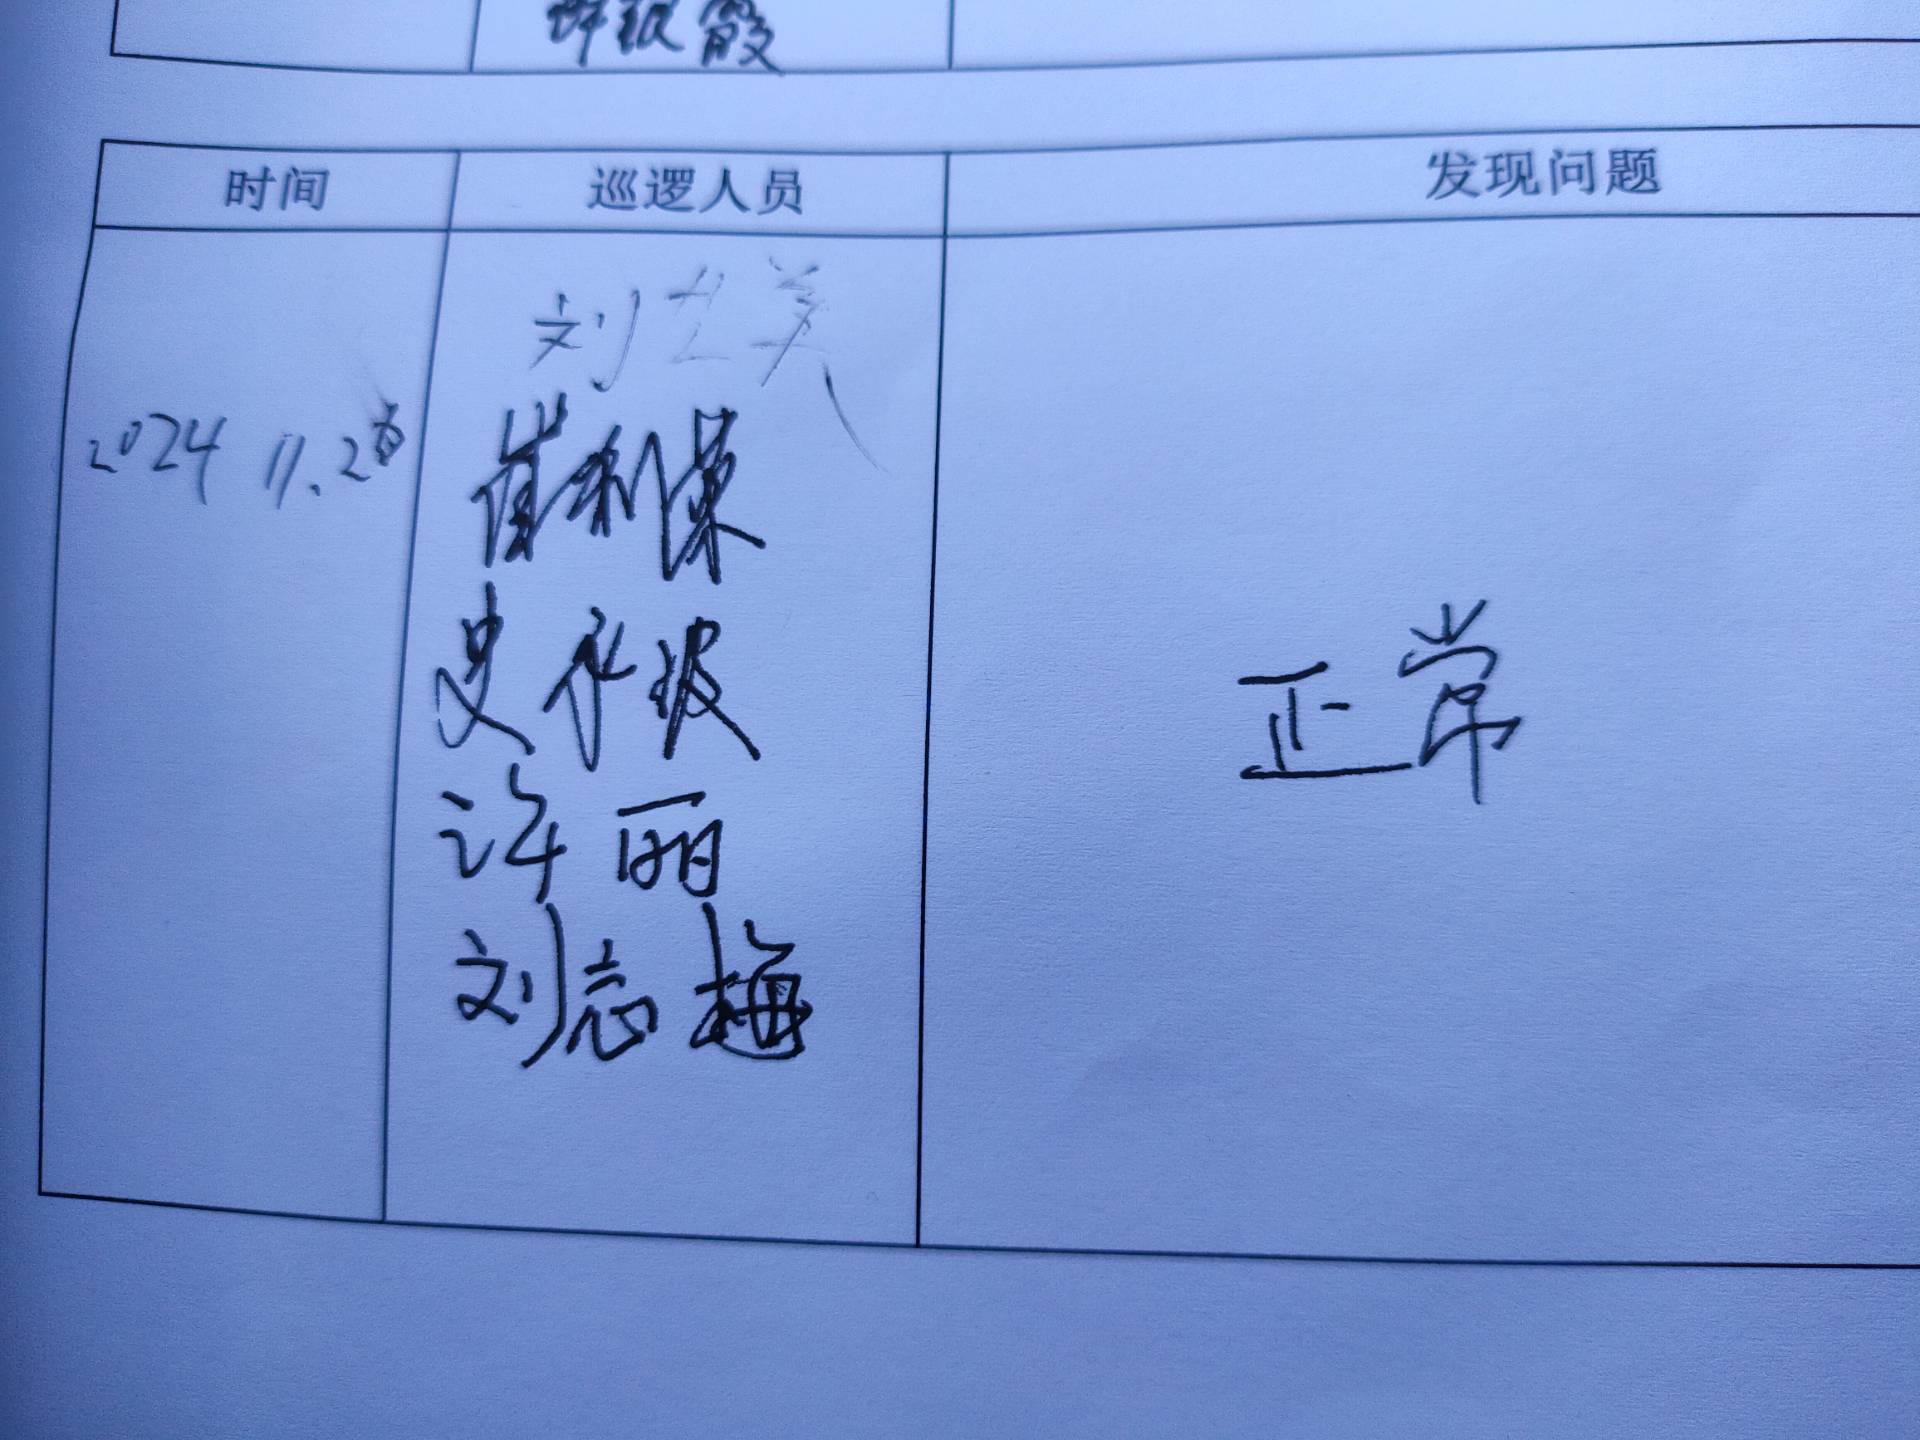 时间 巡逻人员 发现问题
刘
2024 11.2
崔利
史永波
正常
许丽
刘志梅